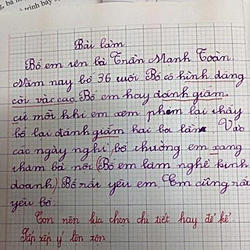 Bài làm
Bố em tên là Trần Mạnh Toàn.
Năm nay bố 36 tuổi Bố có hình dáng
cời vác cao. Bố em hay đánh giám.
cứ mỗi khi em xem phim lại chảy
bố lại đánh giám hai ba lần. Vào
các ngày nghỉ bố thường em xang
thăm bà nội (Bố em làm nghề kinh
doanh) Bố rất yêu em, Em cũng rất
yêu bố.
Con nên lựa chọn chi tiết hay để kể
Sắp xếp ý lộn xộn